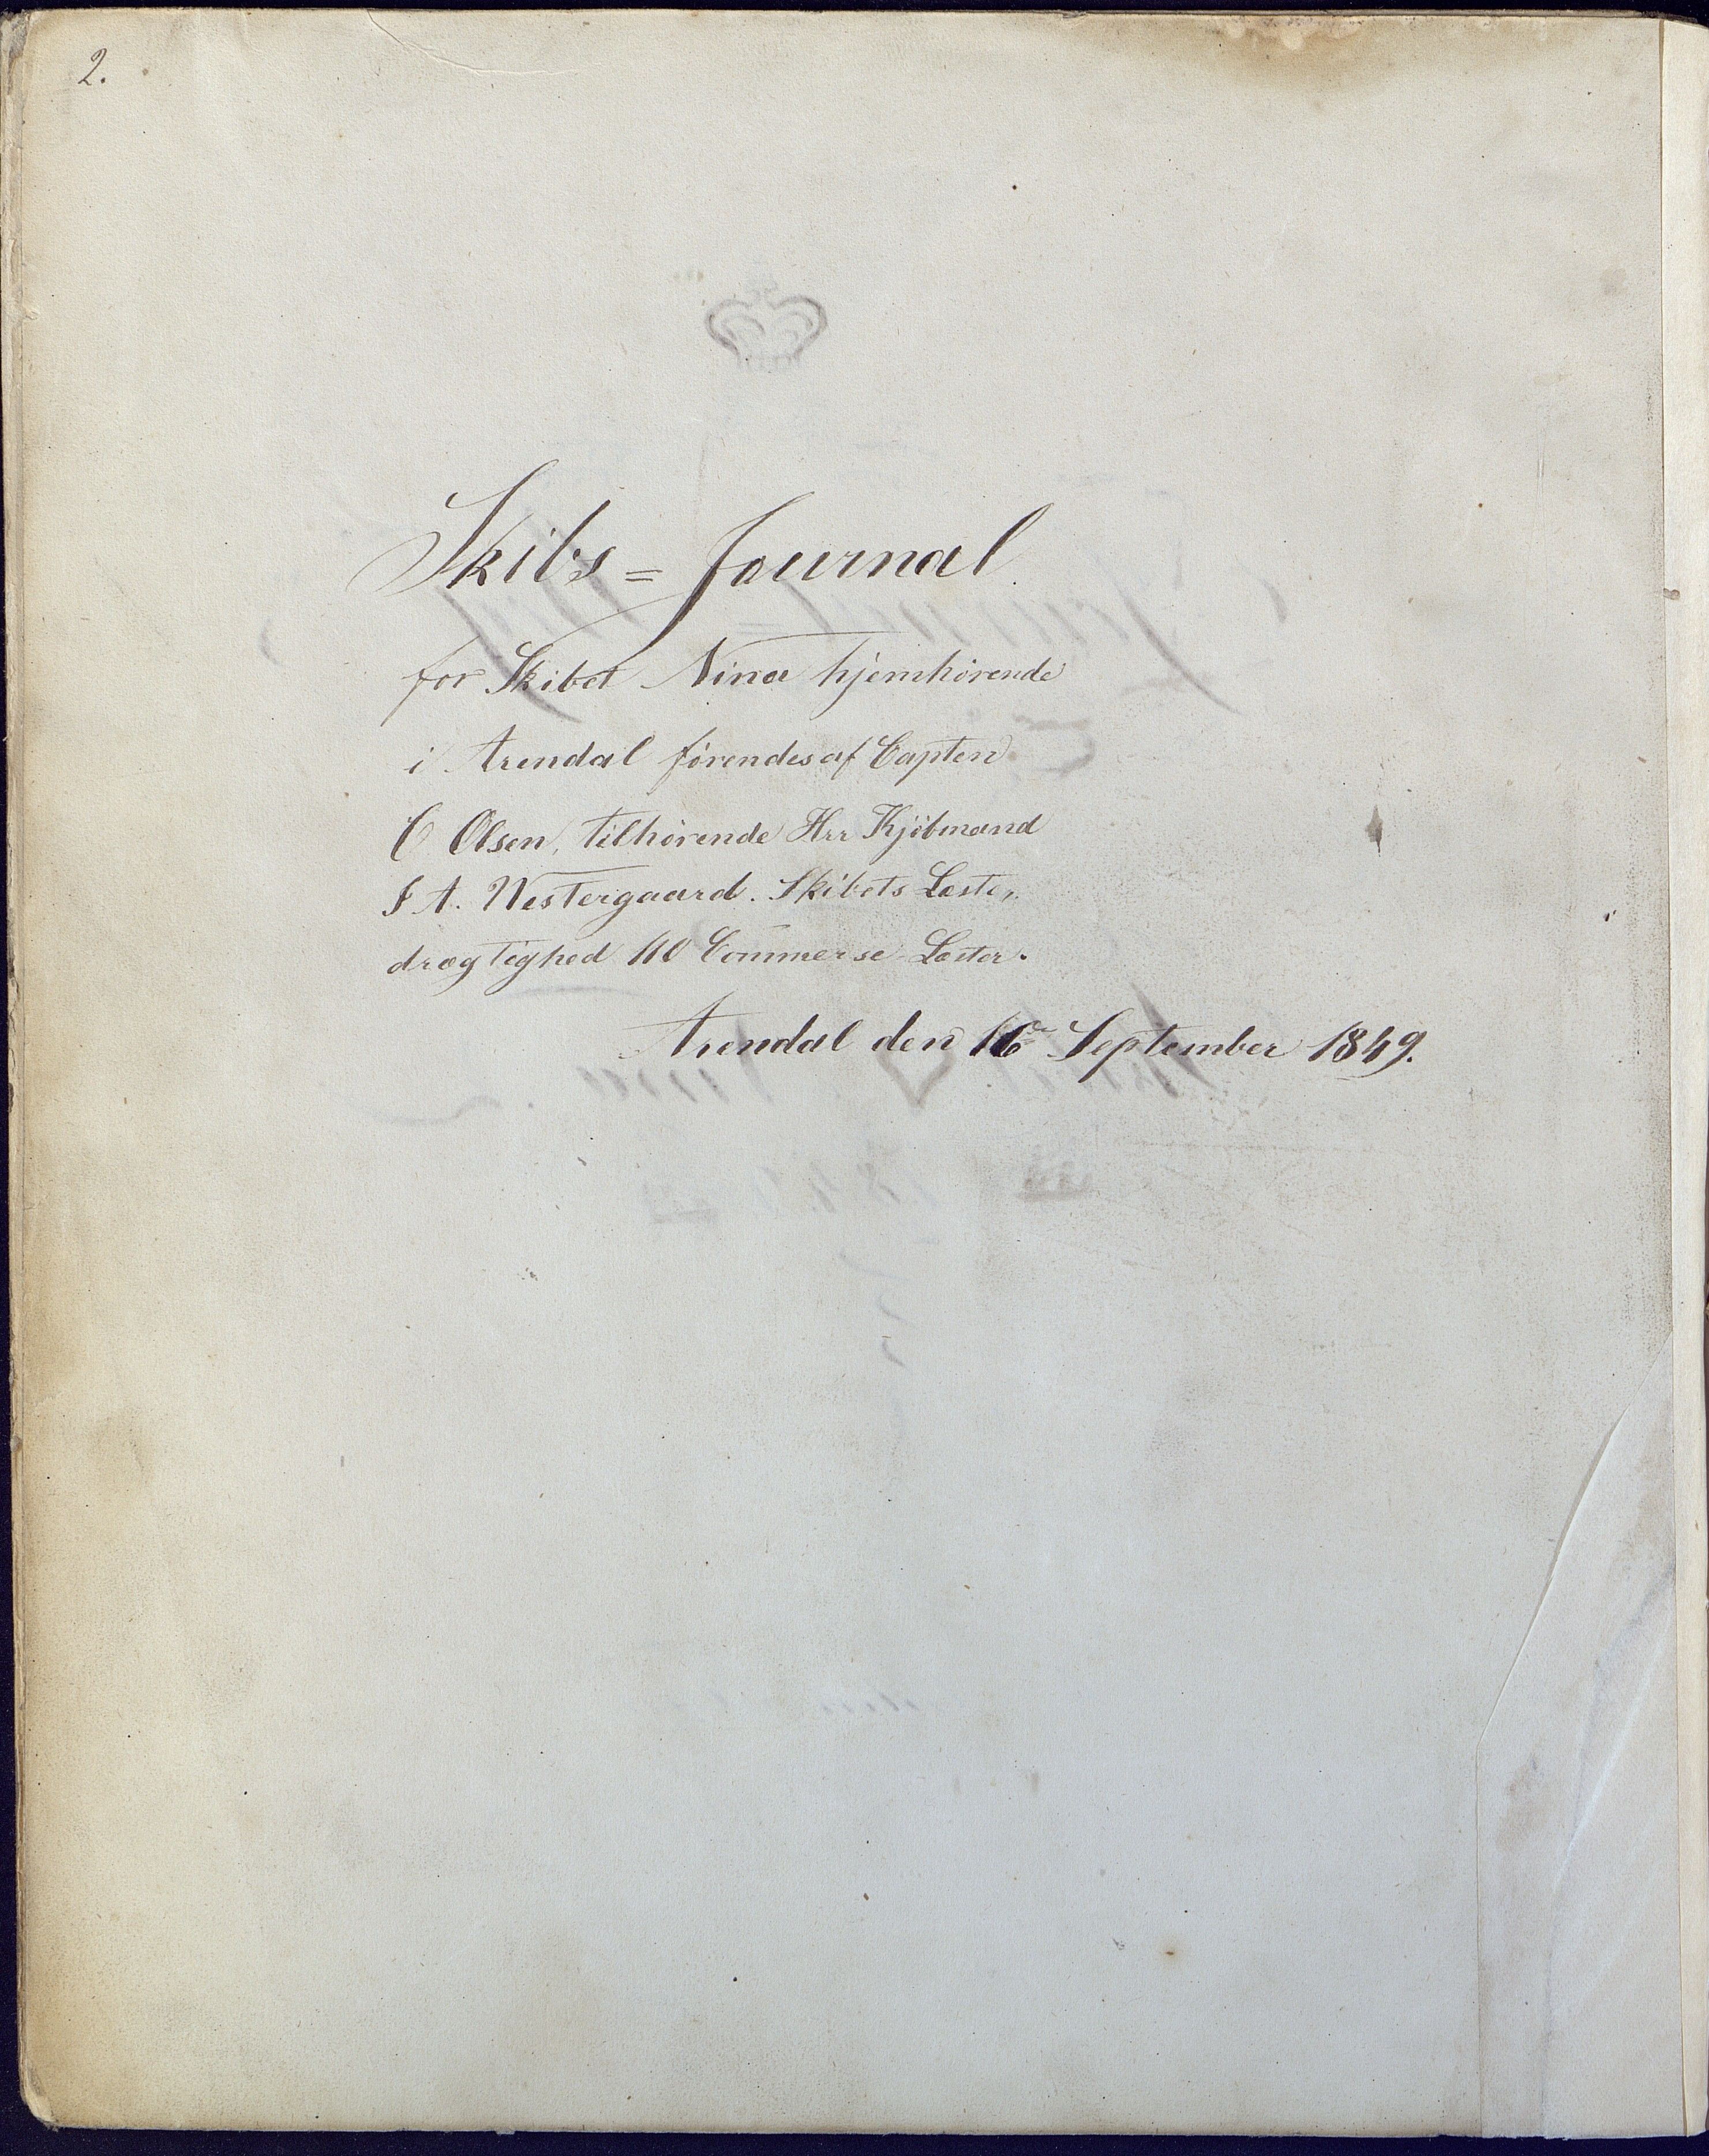 2.
Skibs = Journal
for Skibet Nina hjemhørende
i Arendal førendes af Capten
C Olsen, tilhørende Hrr Kjøbmand
I A. Westergaard. Skibets Læste„
drægtighed 110 Commerse-Læster.
Arendal den 16de September 1849.